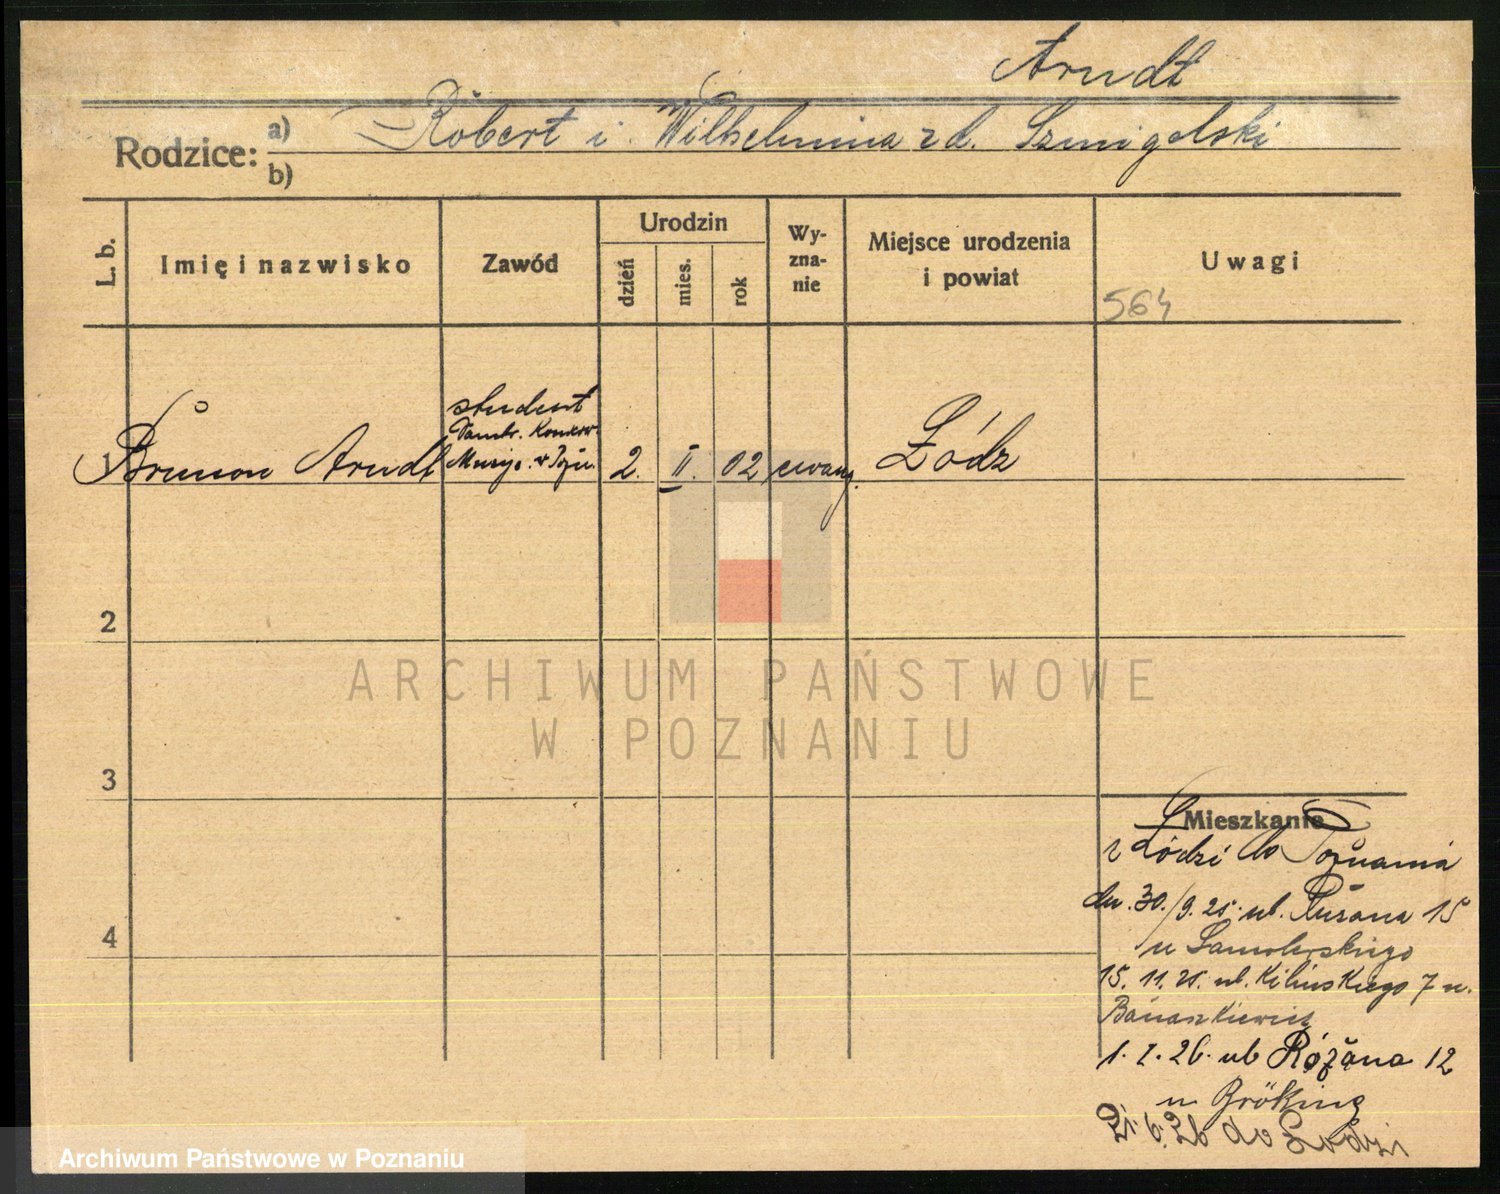 Arndt
Rodzice: a) Robert i Wilhelmina z d. Szmigolski
b)
L. b.
Imię i nazwisko
Zawód
Urodzin
dzień
mies.
rok
Wy-
zna-
nie
Miejsce urodzenia
i powiat
Uwagi
564
1 Brunon Arndt
student
Konserw.
Muzyc. w Pozn.
2. II. 02 ewang. Łódz
2
ARCHIWUM PAŃSTWOWE
W POZNANIU
3
4
Mieszkanie
z Łodzi do Poznania
dn. 30./9. 25. ul. Różana 15
u
15. 11. 25. ul. Kilińskiego 7 u.
Banaszkiewicz
1. I. 26. ul Różana 12
u Bröking
21. 6. 26 do Łodzi
Archiwum Państwowe w Poznaniu